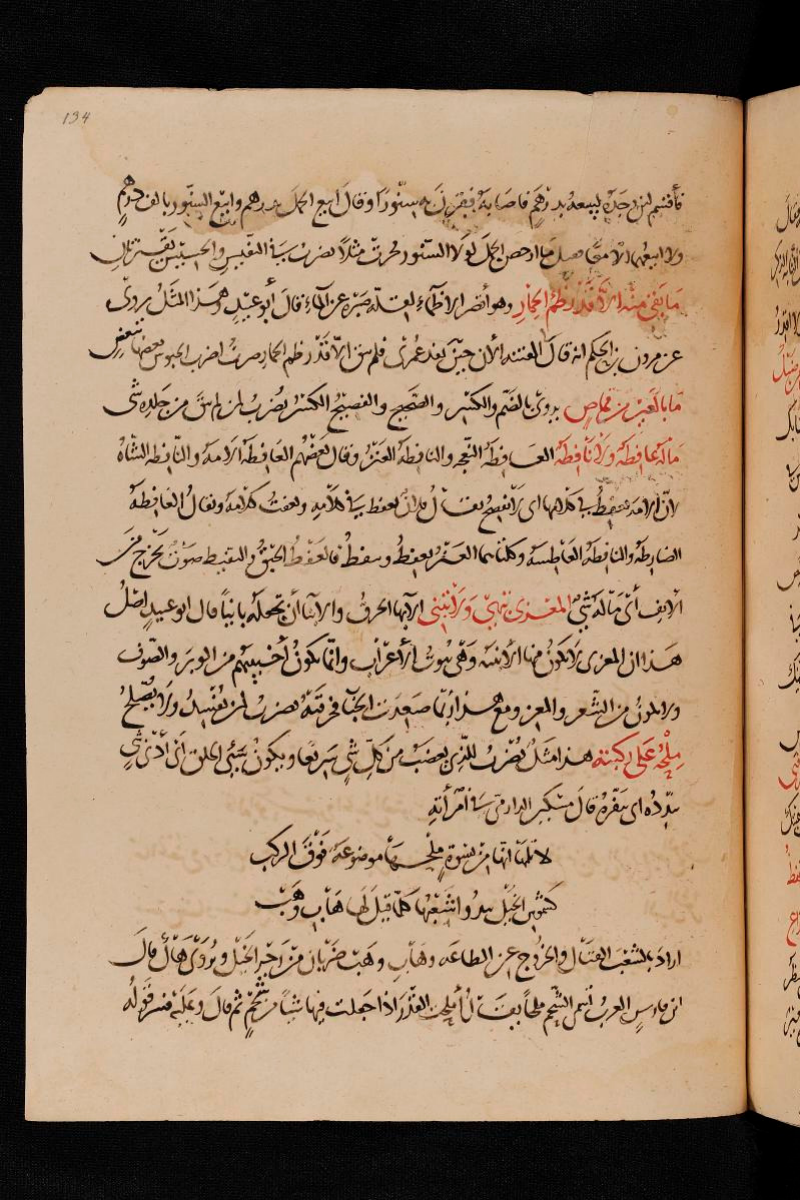 134
فأقسم لئن وجده ليبيعنه بدرهم فاصابه فقرن به سنّورا وقال ابيع الجمل بدرهم وابيع السنّور بالف درهم
ولا ابيعهما الا معًا فقيل ما ارخص الجمل لولا السنّور فجرت مثلا يضرب في النفيس والخسيس يقترنان
مَا بَقِىَ مِنْهُ اِلاّ قَدْرُ ظِمْءِ الحِمَارِ وهو أقصر الاظماء لقلة صبره عن الماء قال أبو عبيد وهذا المثل يروى
عن مرون بن الحكم انه قال في الفتنة الآن حين نفد عمرى فلم يبق الاّ قدر ظمء الحمار صرت اضرب الجيوش بعضها ببعض
مَا بِالعَيْرِ مِنْ قُماصٍ يروى بالضم والكسر والصحيح والفصيح الكسر يضرب لمن لم يبق من جلده شى
مَالَهُ عَافِطَةٌ وَلاَ نَافِطَةٌ العافطة النعجه والنافطة العنز وقال بعضهم العافطة الامة والنافطة الشاة
لانّ الامة تعفط في كلامها اى لا تفصح يقال فلان يعفط في كلامه ويعفت كلامه ويقال العافطة
الضارطة والنافطة العاطسة وكلتاهما العنز تعفط وتنفط فالعفط الحبق والنفيط صوت يخرج من
الانف أى مَا له شئ المِعْزَى تُبْهِي وَلاَ تُبْنِى الابهاء الخرق والابناء أن تجعله بانيًا قال ابو عبيد اصل
هذا ان المعزى لا يكون منها الابنية وهى بيوت الأعراب وانما تكون أخبيتهم من الوبر والصوف
ولا تكون من الشعر والمعز ومع هذا ربما صعدت الخباء فخرقته يضرب لمن يفسد ولا يصلح
مِلْحُهُ عَلَى رُكْبَتِهِ هذا مثل يضرب للذى يغضب من كل شى سريعا ويكون سيئ الخلق اى أدنى شئ
يبدّده اى ينفره قال مسكين الدارمى في امرأته
لا تلمها انها من نسوة ملحها موضوعة فوق الركب
كشموس الخيل يبدو شغبها كلما قيل لها هاب وهب
اراد بالشغب القتال والخروج عن الطاعة وهاب وهب ضربان من زجر الخيل ويروى هال قال
ابن فارس العرب تسمى الشحم ملحا يقال أملحت القدر اذا جعلت فيها شيئا من شحم ثم قال وعليه فسر قوله